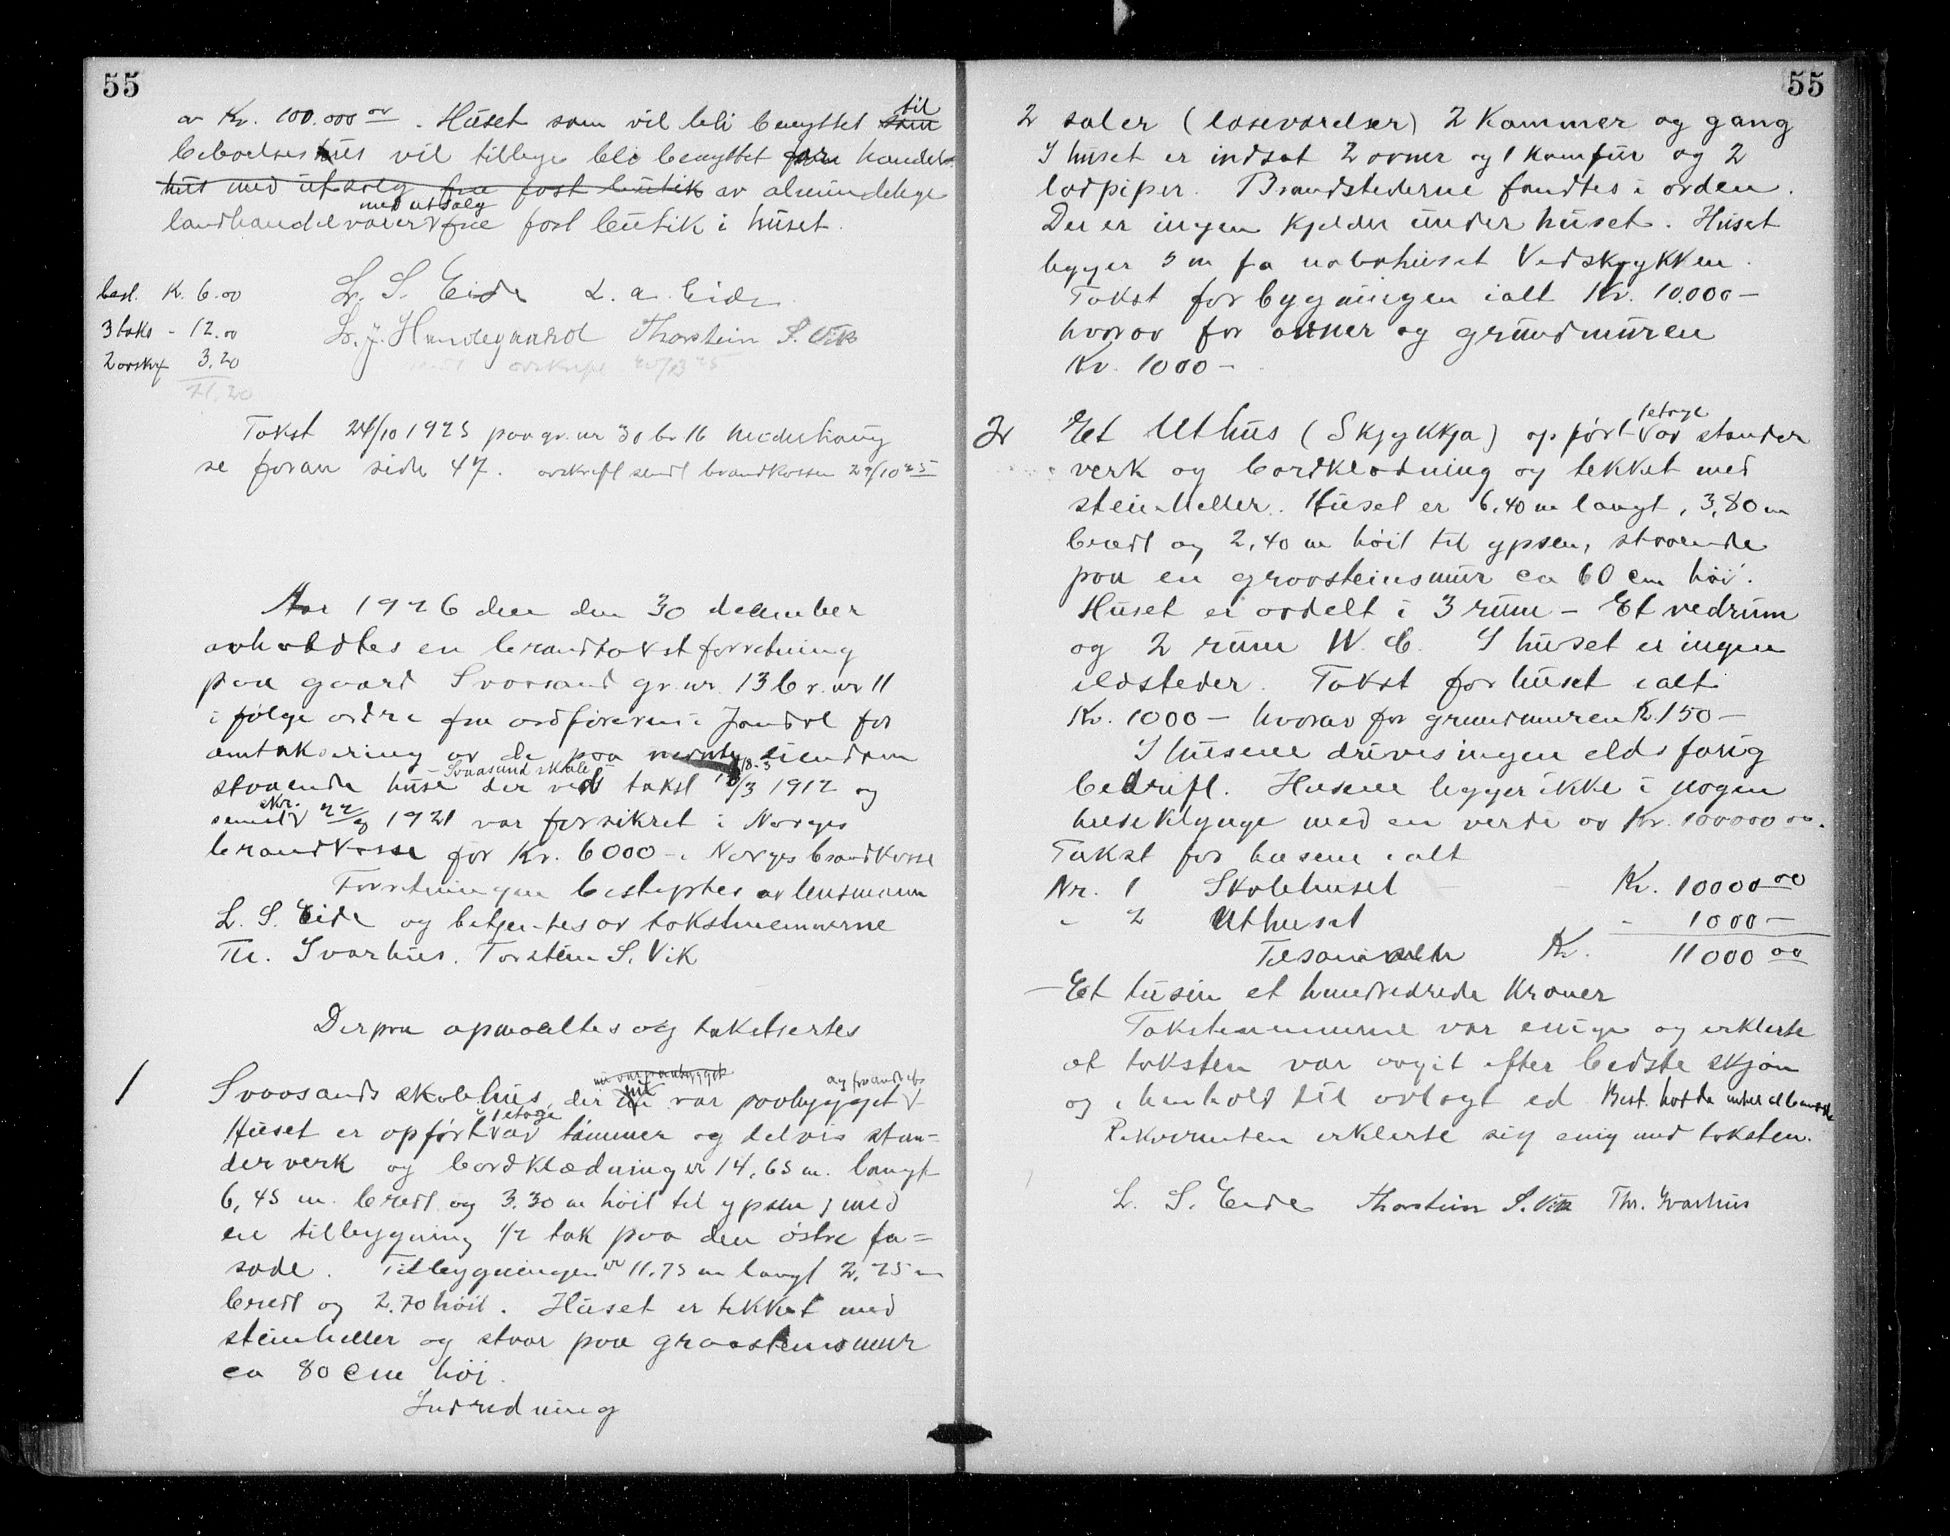 55
av Kr. 100.000 00. Huset som vil bli benyttet som til
beboelseshus vil tillige bli benyttet handels
hus med utsalg fra fast butik av almindelige
landhandelvarer med utsalg fra fast butik i huset.
best. K. 6.00
L. S. Eide L. A. Eide
3 taks - 12.00
Thorstein S. Vik
2 avskrf 3.20
21.20
Takst 24/10 1925 paa gr. nr 30 br 16 Nederhaug
se foran side 47. avskrift sendt brandkassen 29/10 25
Aar 1926 den 30 december
avholdtes en brandtakstforretning
paa gaard Svaasand gr. nr. 13 br. nr 11
i følge ordre fra ordføreren i Jondal for
omtaksering av de paa eiendom
staaende huse Svaasand skole der ved takst 18/3 1912 og
senest skr. 22/9 1921 var forsikret i Norges
brandkasse for Kr. 6000 - i Norges brandkasse
Forretningen bestyrtes av lensmann
L. S. Eide og betjentes av takstmennerne
Th. Svarhus. Torstein S. Vik
Derpaa opmaaltes og taksertes
1 Svaasands skolehus, der nu var paabygget og forandret
Huset er opført i 1 etage av tømmer og delvis stan-
derverk og bordklædning er 14,65 m. langt
6,45 m. bredt og 3.30 m høit til ypsen, med
en tilbygning 1/2 tak paa den østre fa=
sade. Tilbygningen er 11.75 m langt 2,25 m
bredt og 2.70 høit. Huset er tekket med
steinheller og staar paa graasteinsmur
ca 80 cm høi.
Indredning
55
2 saler (læseværelser) 2 kammer og gang
I huset er indsat 2 ovner og 1 komfur og 2
lodpiper. Brandstederne fandtes i orden.
Der er ingen kjelder under huset. Huset
ligger 5 m fra nabohuset Vedskjykken.
Takst for bygningen ialt Kr. 10.000 -
hvorav for ovner og grundmuren
Kr. 1000 -
2 Et Uthus (Skjykkja) opført 1 etage av stander
verk og bordklædning og tekket med
steinheller. Huset er 6,40 m langt, 3,80 m
bredt og 2,40 m høit til ypsen, staaende
paa en graasteinsmur ca 60 cm høi.
Huset er avdelt i 3 rum - Et vedrum
og 2 rum W. C. I huset er ingen
ildsteder. Takst for huset ialt
Kr. 1000 - hvorav for grundmuren K. 150 -
I husene drives ingen eldsfarlig
bedrift. Husene ligger ikke i nogen
huseklynge med en verdi av Kr. 100000 00.
Takst for husene ialt
Nr. 1 Skolehuset Kr. 10000 00
- 2 Uthuset - 1000 -
Tilsammen Kr. 11000 00
- Et tusin et hundredrede kroner
Takstmennerne var enige og erklerte
at taksten var avgit efter bedste skjøn
og i henhold til avlagt ed
Rekvirenten erklerte sig enig med taksten.
L. S. Eide Thorstein S. Vik Thr. Svarhus